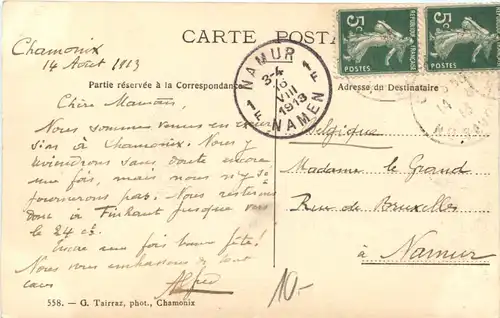 CARTE POSTA
Chamonix
14 Août 1913
Partie réservée à la Correspondance
Adresse du Destinataire
5c
POSTES
5c
POSTES
NAMUR
3-4
VIII
1913
NAMEN
Chère Maman,
Nous sommes venus en excur
sion à Chamonix. Nous y
reviendrons sans doute encore
une fois, mais nous n'y sé
journerons pas. Nous resterons
donc à Finhaut jusque vers
le 24 ct.
Encore une fois bonne fête!
Nous vous embrassons de tout
cœur
Alfred
Belgique
Madame le Grand
Rue de Bruxelles
à Namur
10.-
558. — G. Tairraz, phot., Chamonix